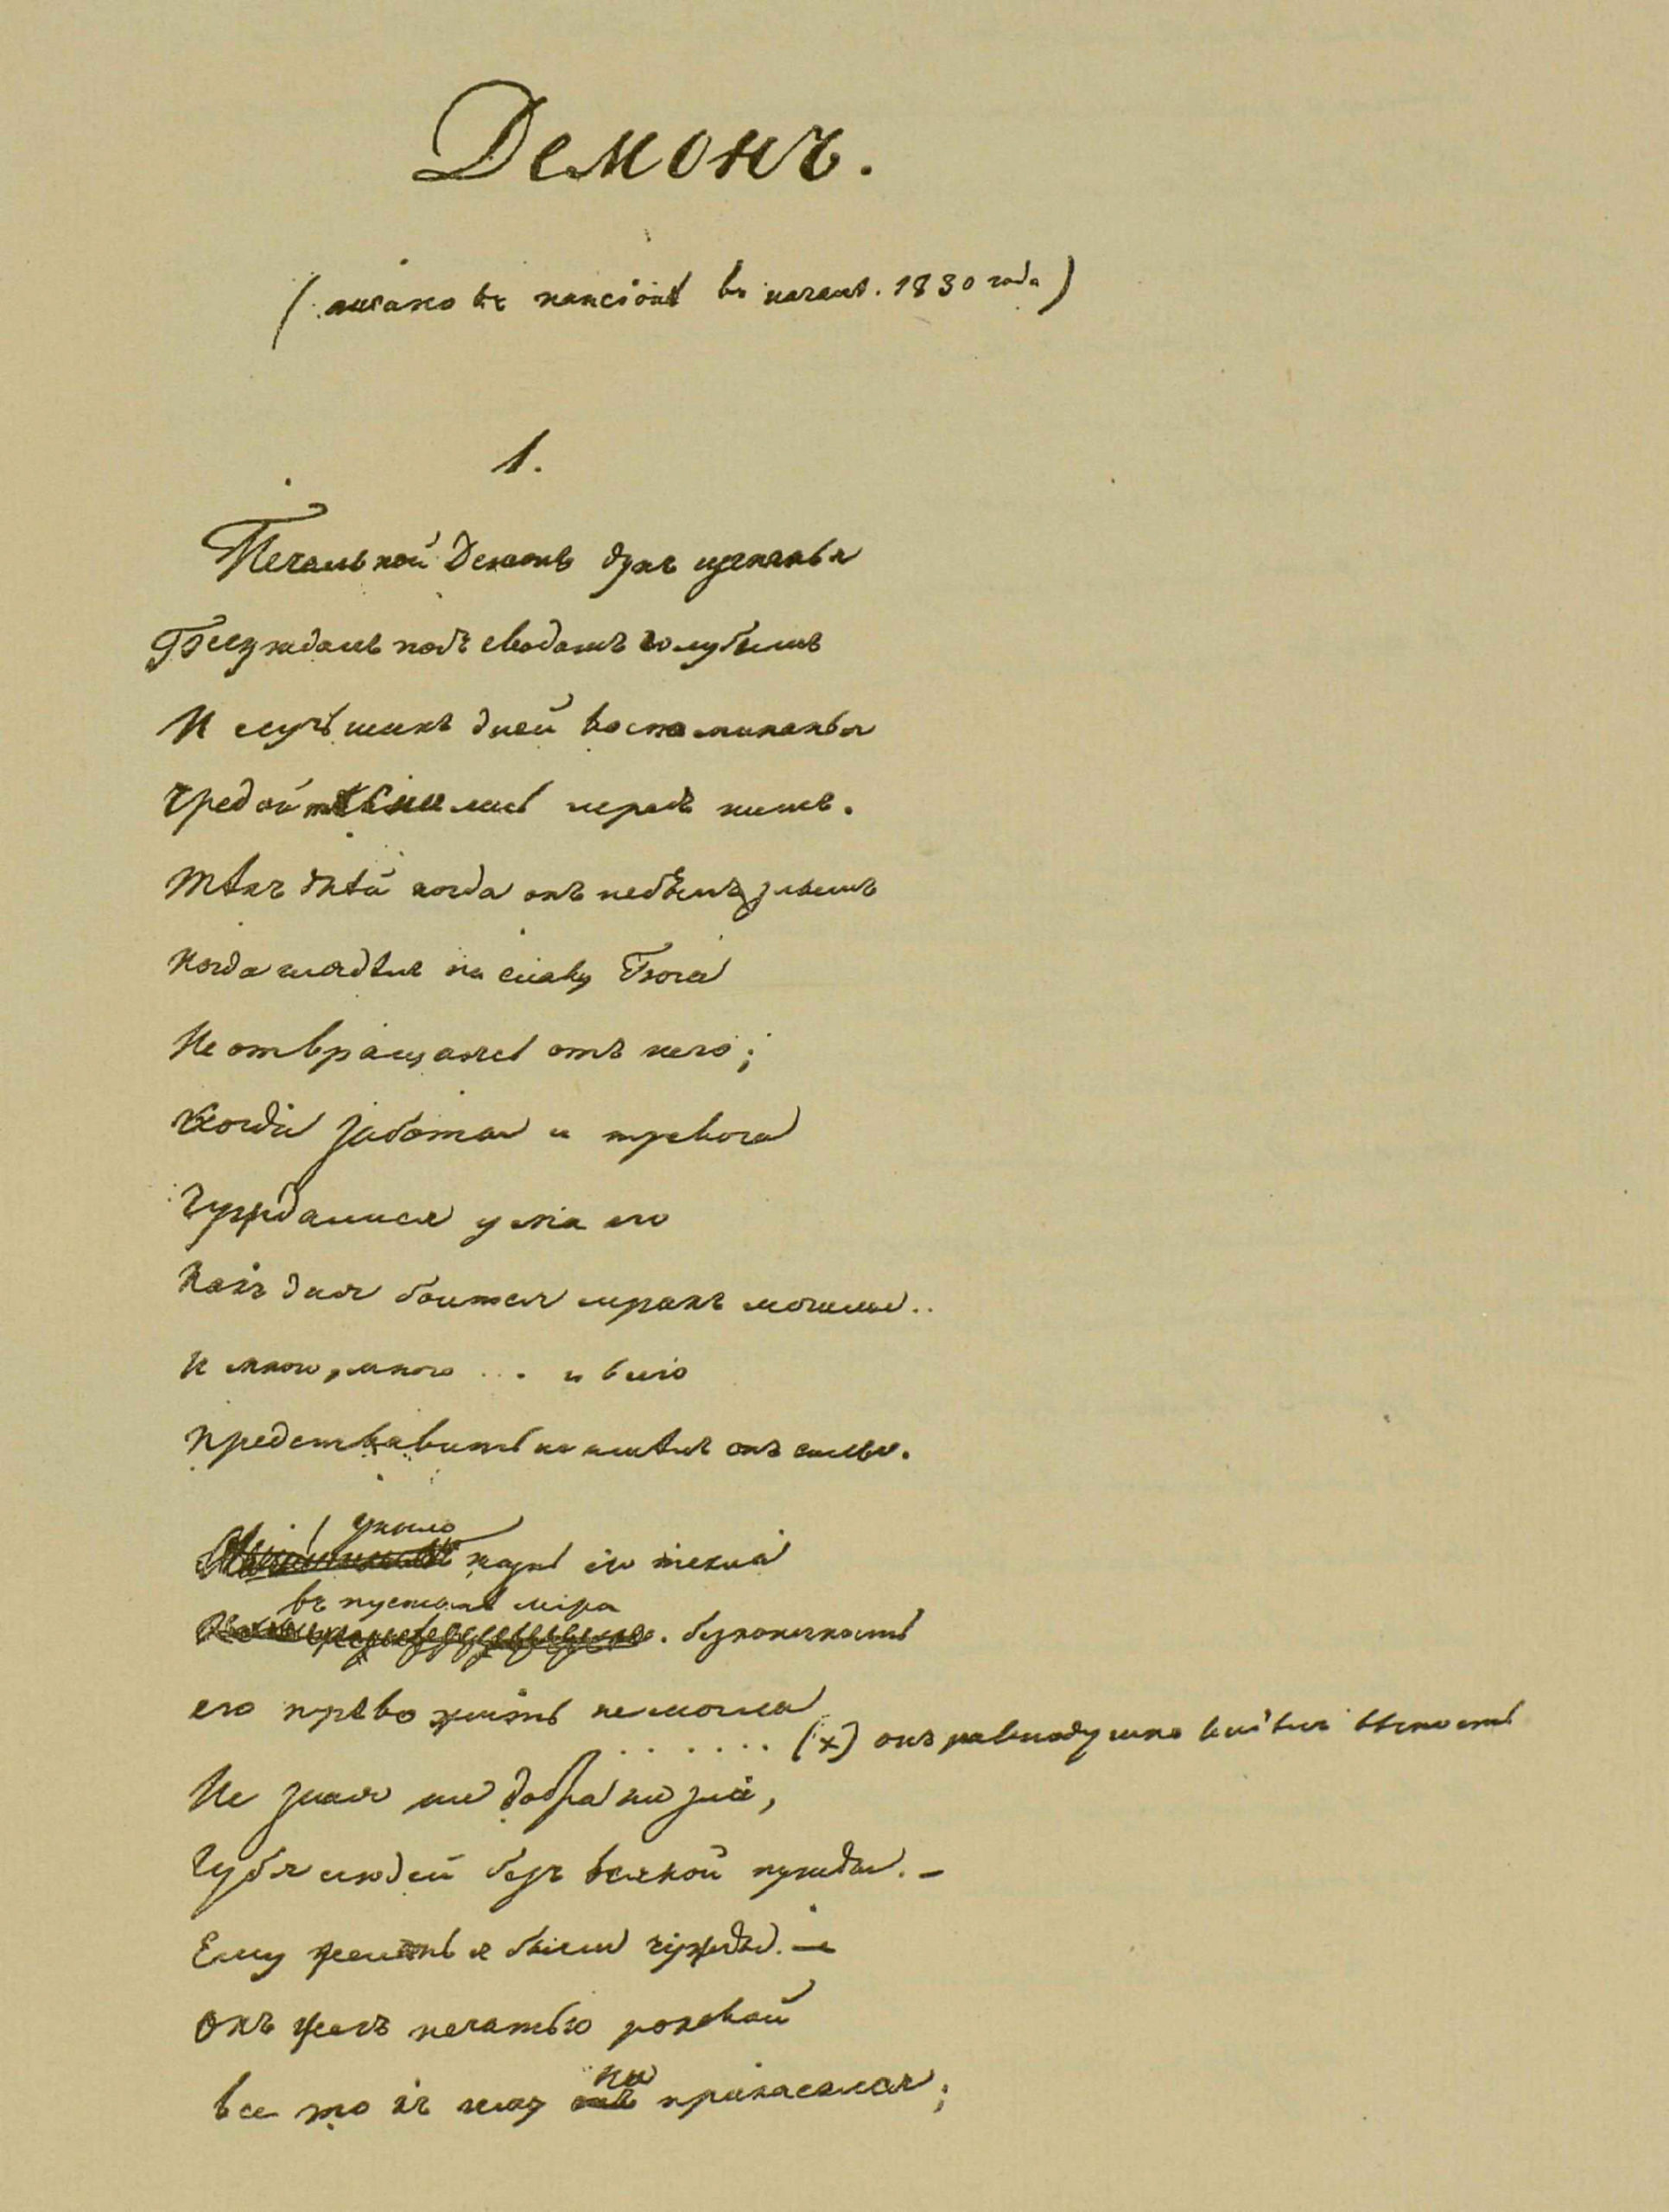 Демонъ.
(писано въ пансіонѣ въ началѣ. 1830 года)
1.
Печальной Демонъ духъ изгнанья
Блуждалъ подъ сводомъ голубымъ
И лучьшихъ дней воспоминанья
Чредой тѣснились передъ нимъ.
Тѣхъ дней когда онъ не былъ злымъ
Когда глядѣлъ на славу Бога
Не отвращаясь отъ него;
Когда забота и тревога
Чуждалися ума его
Какъ дня боится мракъ могилы..
И много, много ... и всего
Представить не имѣлъ онъ силы.
Уныло жизнь его текла
въ пустынѣ міра. безконечность
его тревожить не могла
....... (х) онъ равнодушно видѣлъ вѣчность
Не зная ни добра ни зла,
Губя людей безъ всякой нужды. –
Ему желанья были чужды. –
Онъ жегъ печатью роковой
все то къ чему ни прикасался;